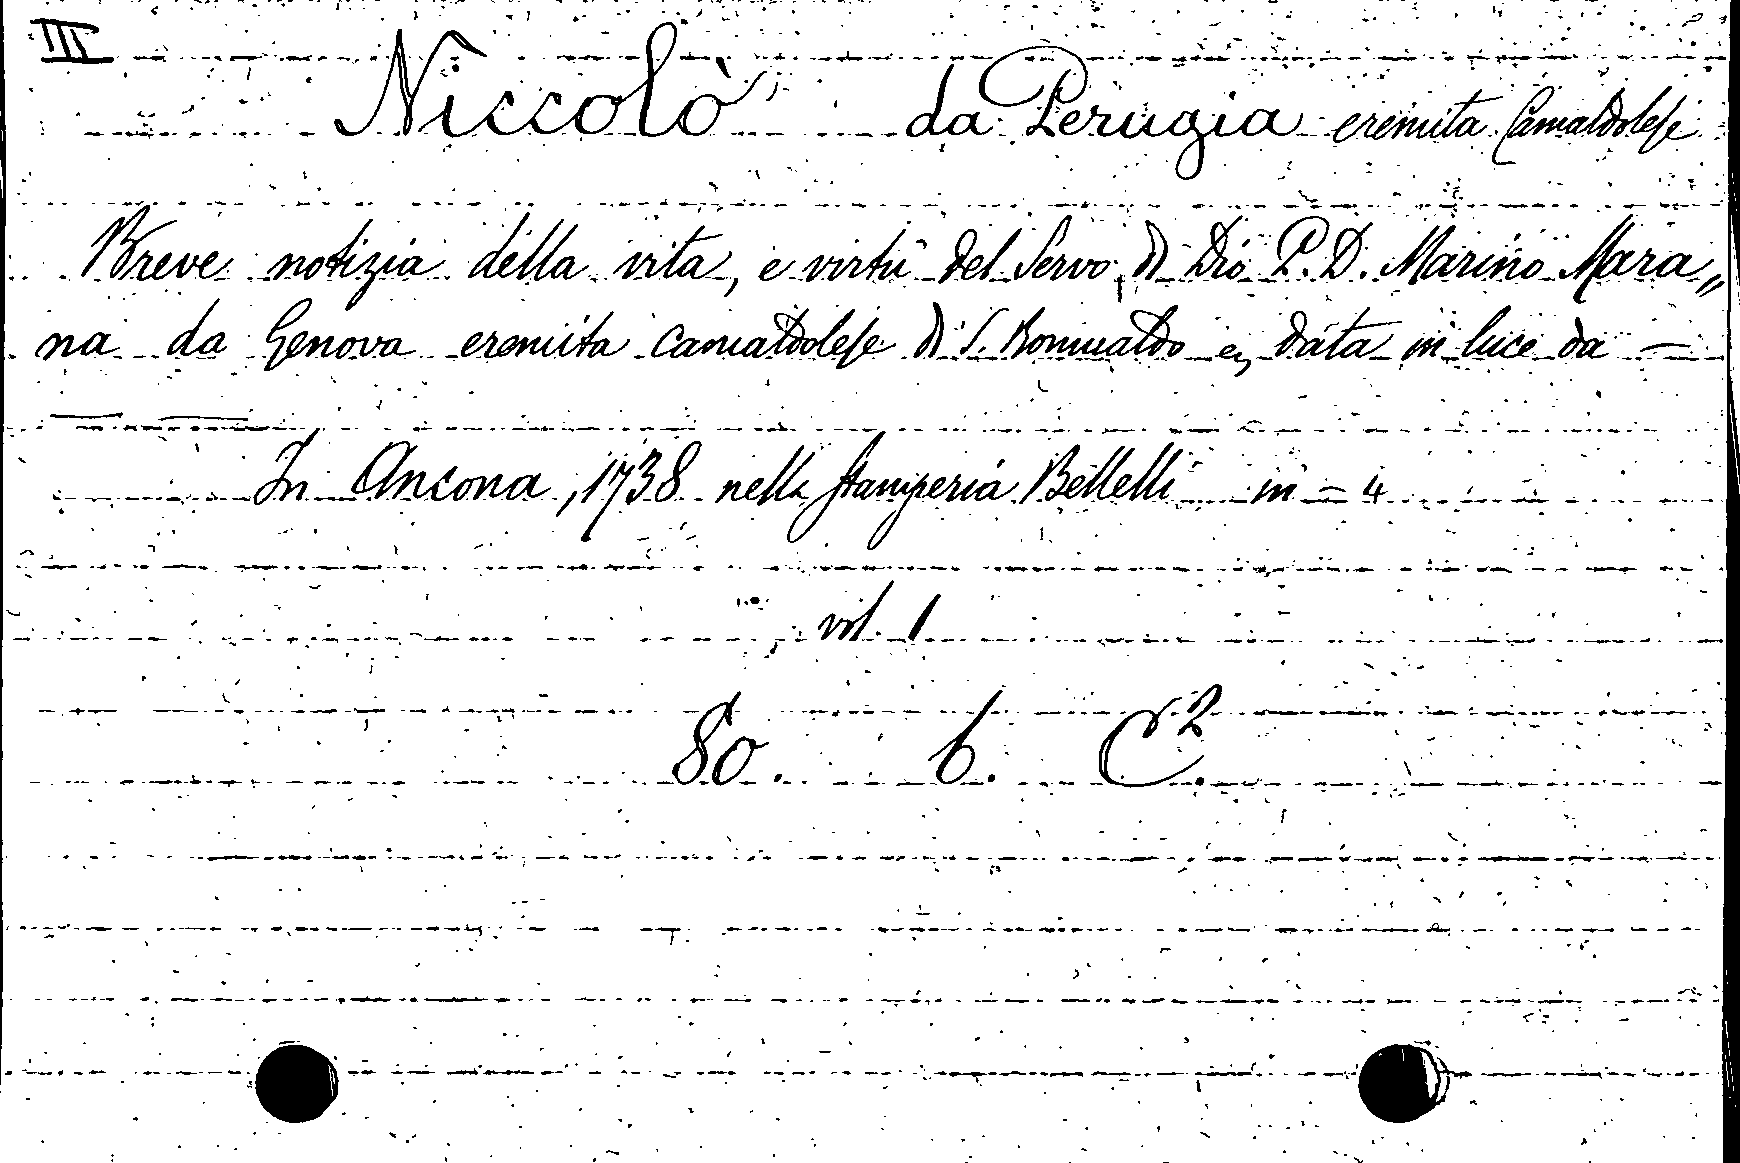 III
Niccolò da Perugia eremita Camaldolese
Breve notizia della vita, e virtù del Servo di Dio P. D. Marino Mara„
na da Genova eremita camaldolese di S. Romualdo ec, data in luce da —
— —
In Ancona, 1738 nella stamperia Bellelli in - 4
vol. 1
80. b. C2.